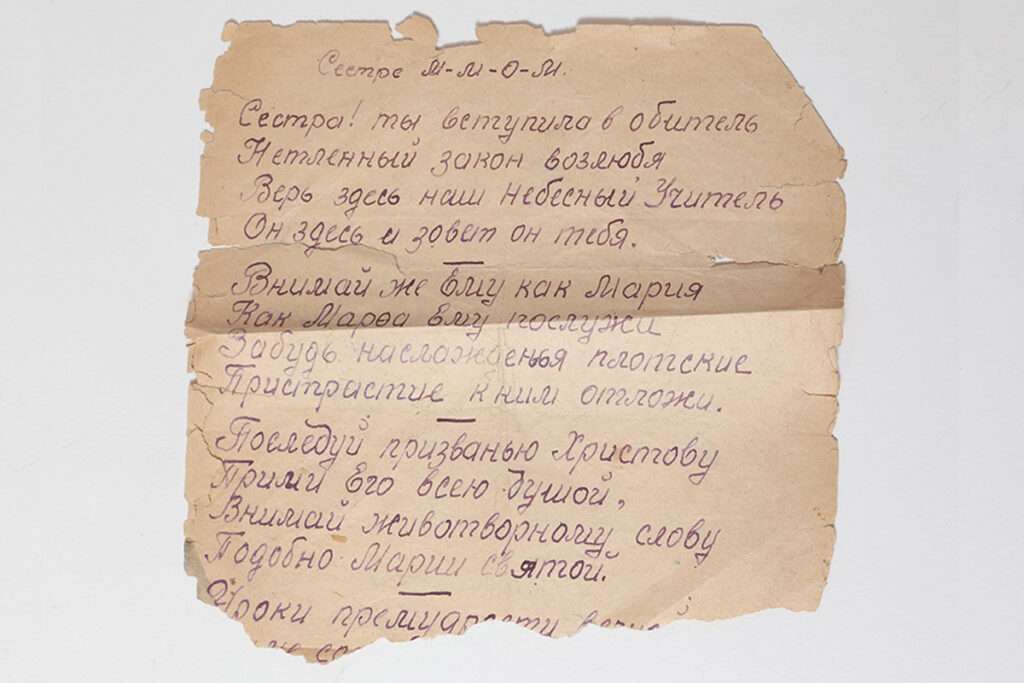 Сестре М-М-О-М.
Сестра! ты вступила в обитель
Нетленный закон возлюбя
Верь здесь наш Небесный Учитель
Он здесь и зовет он тебя.
Внимай же Ему как Мария
Как Марѳа Ему послужи
Забудь наслажденья плотские
Пристрастие к ним отложи.
Последуй призванью Христову
Прими Его всею душой,
Внимай животворному слову
Подобно Марии святой.
Уроки премудрости